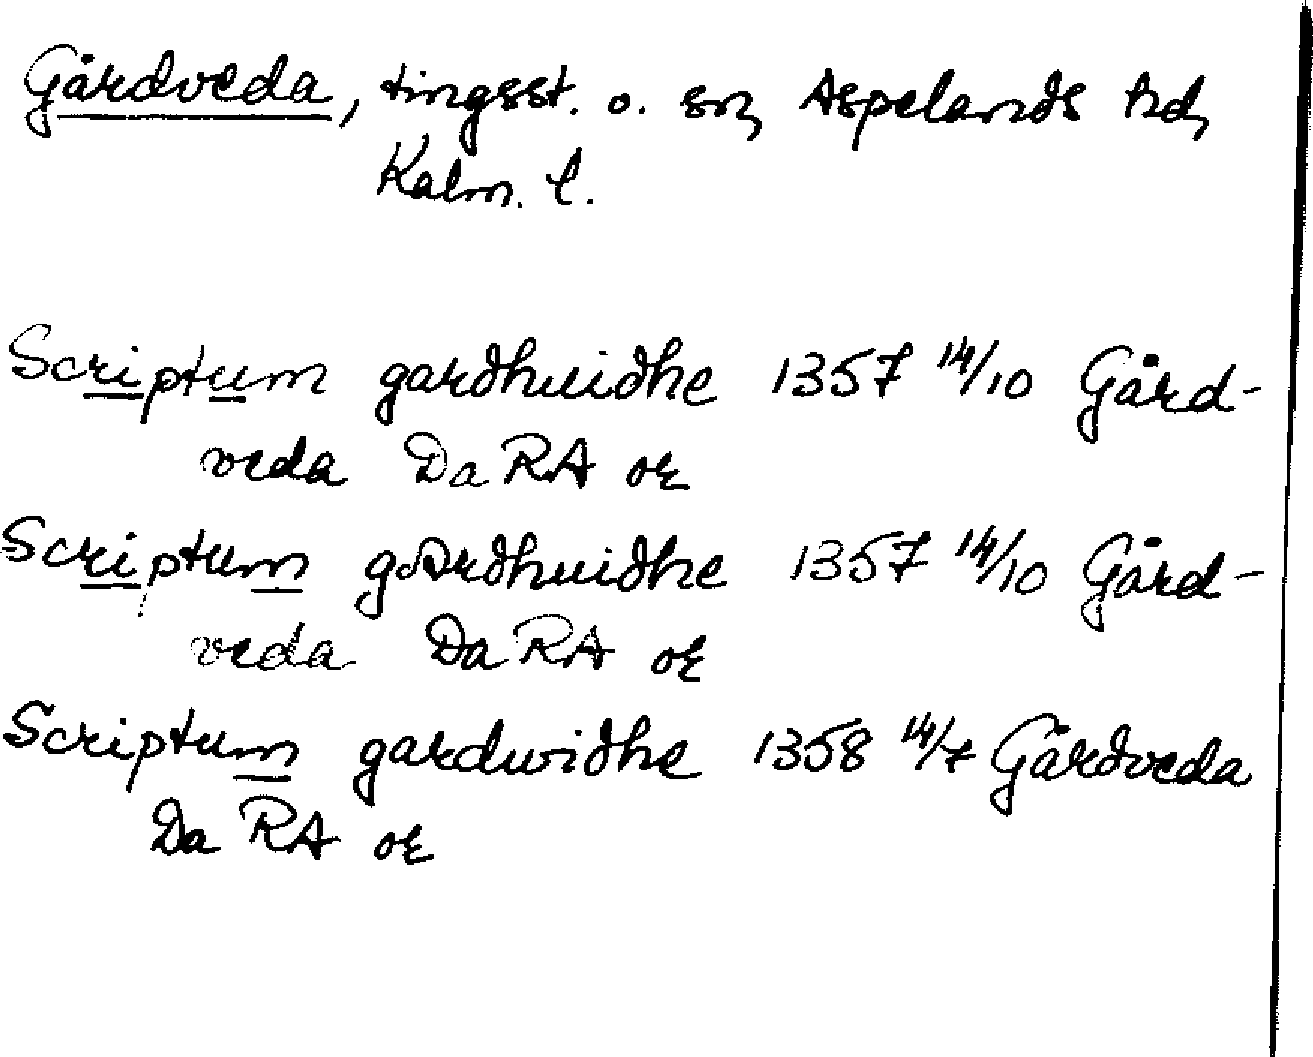 Gårdveda, tingsst. o. sn, Aspelands hd,
Kalm. l.
Scriptum garðhuiðhe 1357 14/10 Gård-
veda Da RA or
Scriptum garðhuiðhe 1357 14/10 Gård-
veda Da RA or
Scriptum gardwiðhe 1358 14/7 Gårdveda
Da RA or